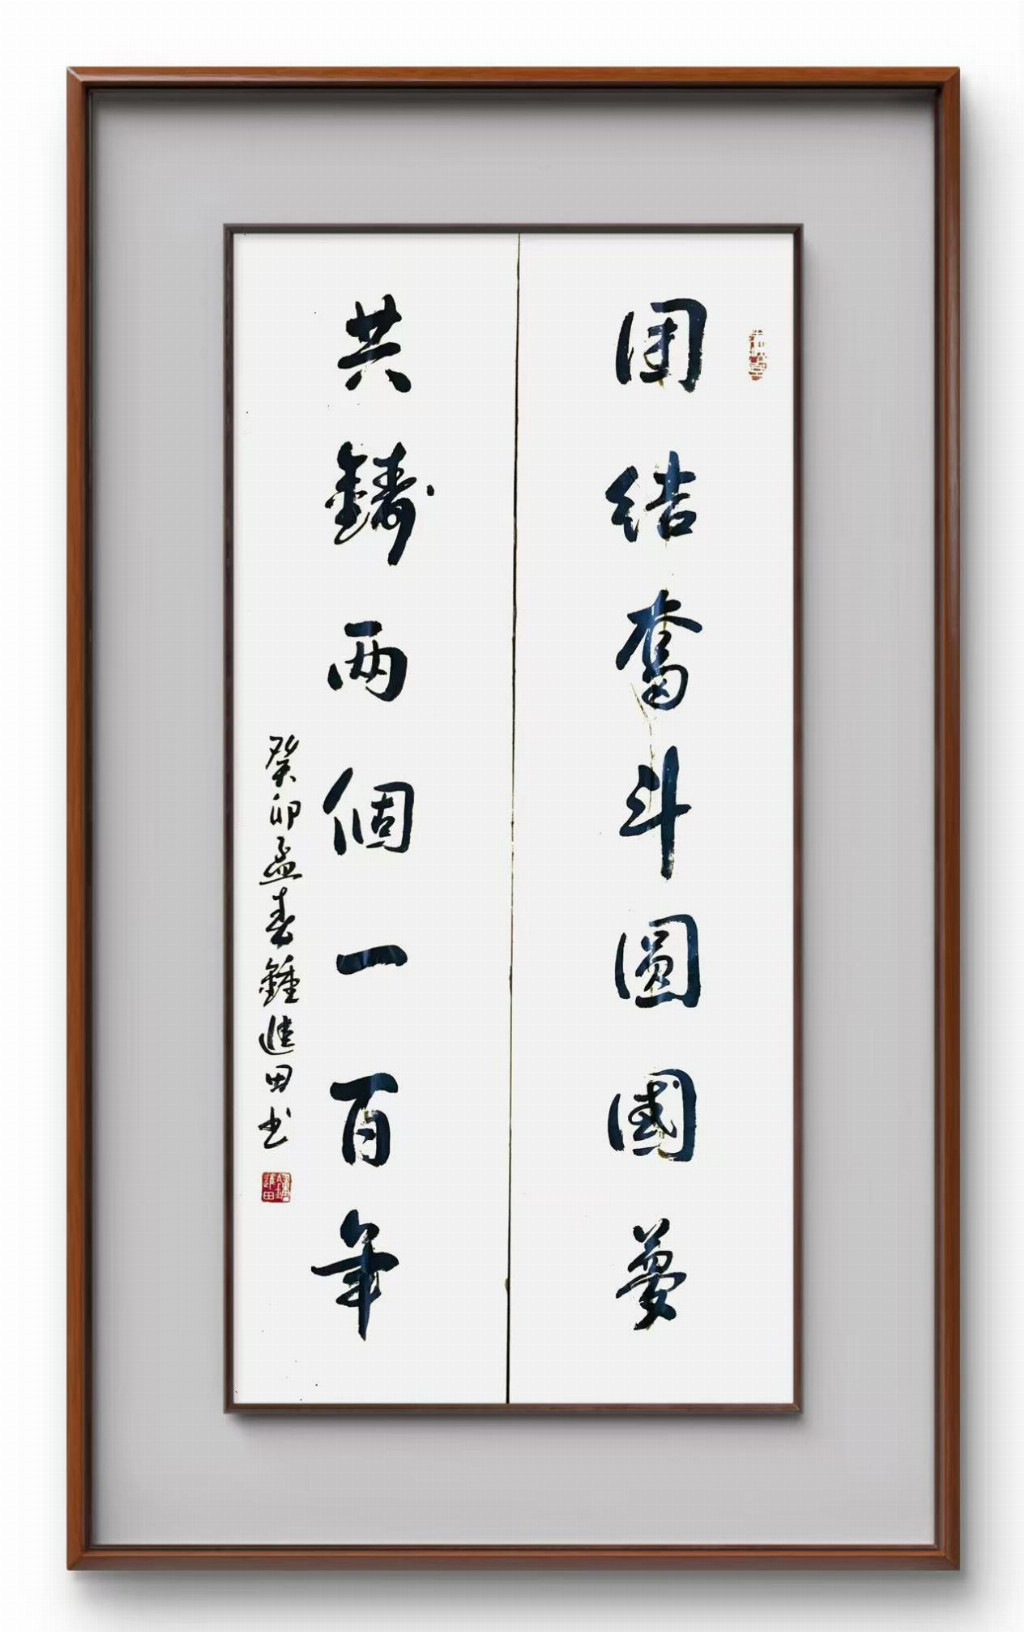 团结奋斗圆國夢
共鑄两個一百年
癸卯孟春鍾進田书